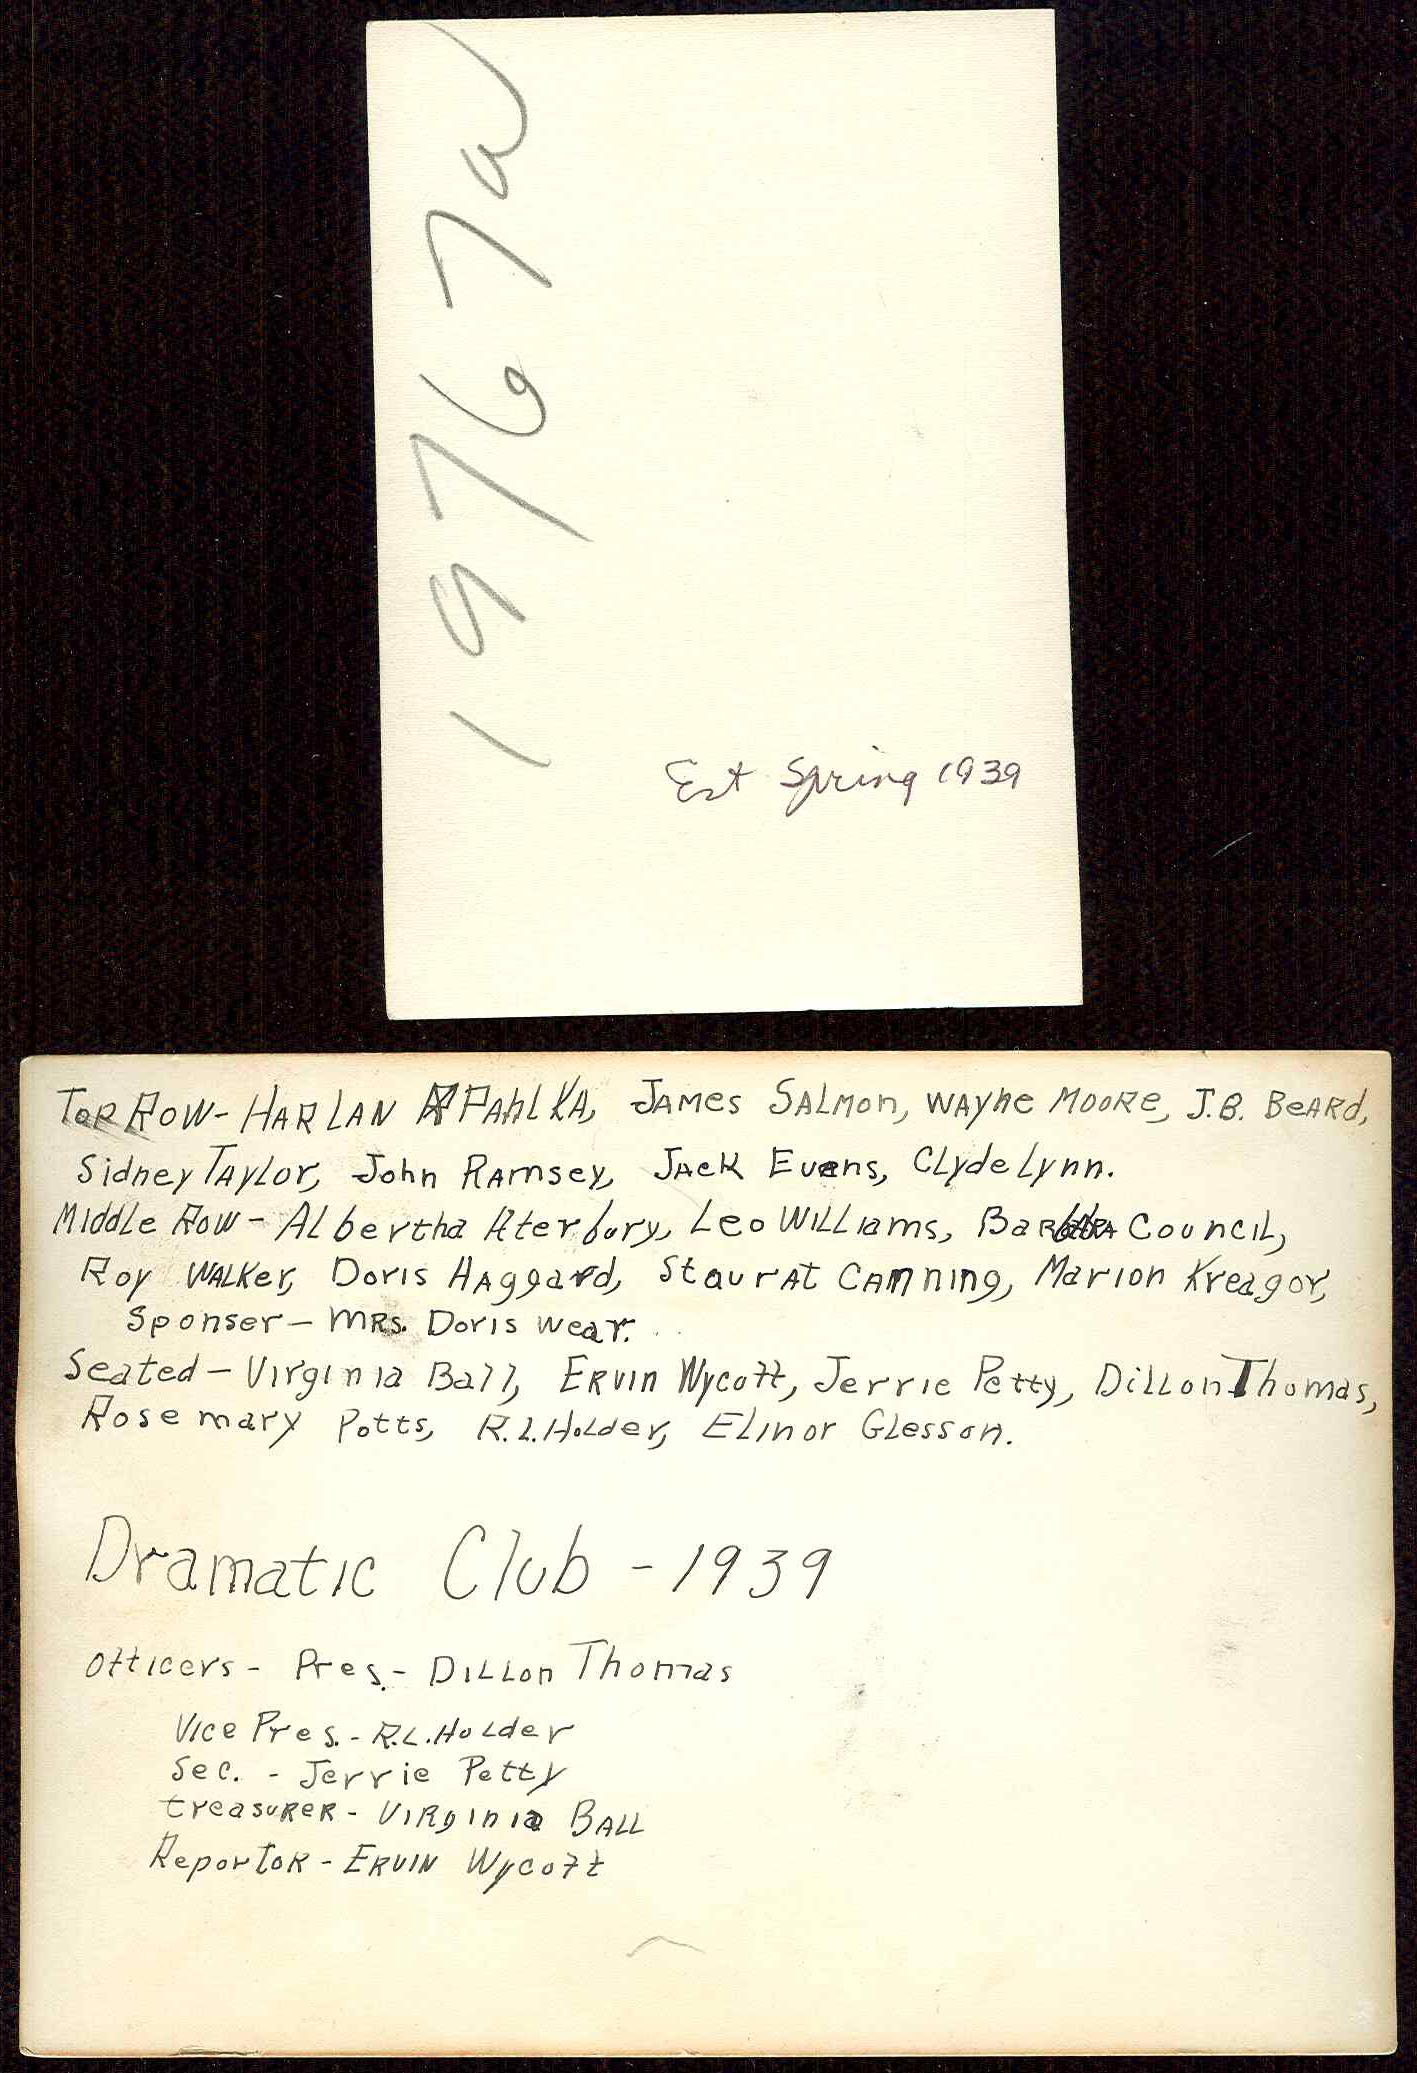 19767W
Est Spring 1939
Top Row - Harlan Pahlka, James Salmon, Wayne Moore, J.B. Beard,
Sidney Taylor, John Ramsey, Jack Evans, Clyde Lynn.
Middle Row - Albertha Aterbury, Leo Williams, Barbara Council,
Roy Walker, Doris Haggard, Staurat Canning, Marion Kreagor,
Sponser - Mrs. Doris Wear.
Seated - Virginia Ball, Ervin Wycott, Jerrie Petty, Dillon Thomas,
Rosemary Potts, R.L. Holder, Elinor Glesson.
Dramatic Club - 1939
Officers - Pres. - Dillon Thomas
Vice Pres. - R.L. Holder
Sec. - Jerrie Petty
treasurer - Virginia Ball
Reportor - Ervin Wycoff